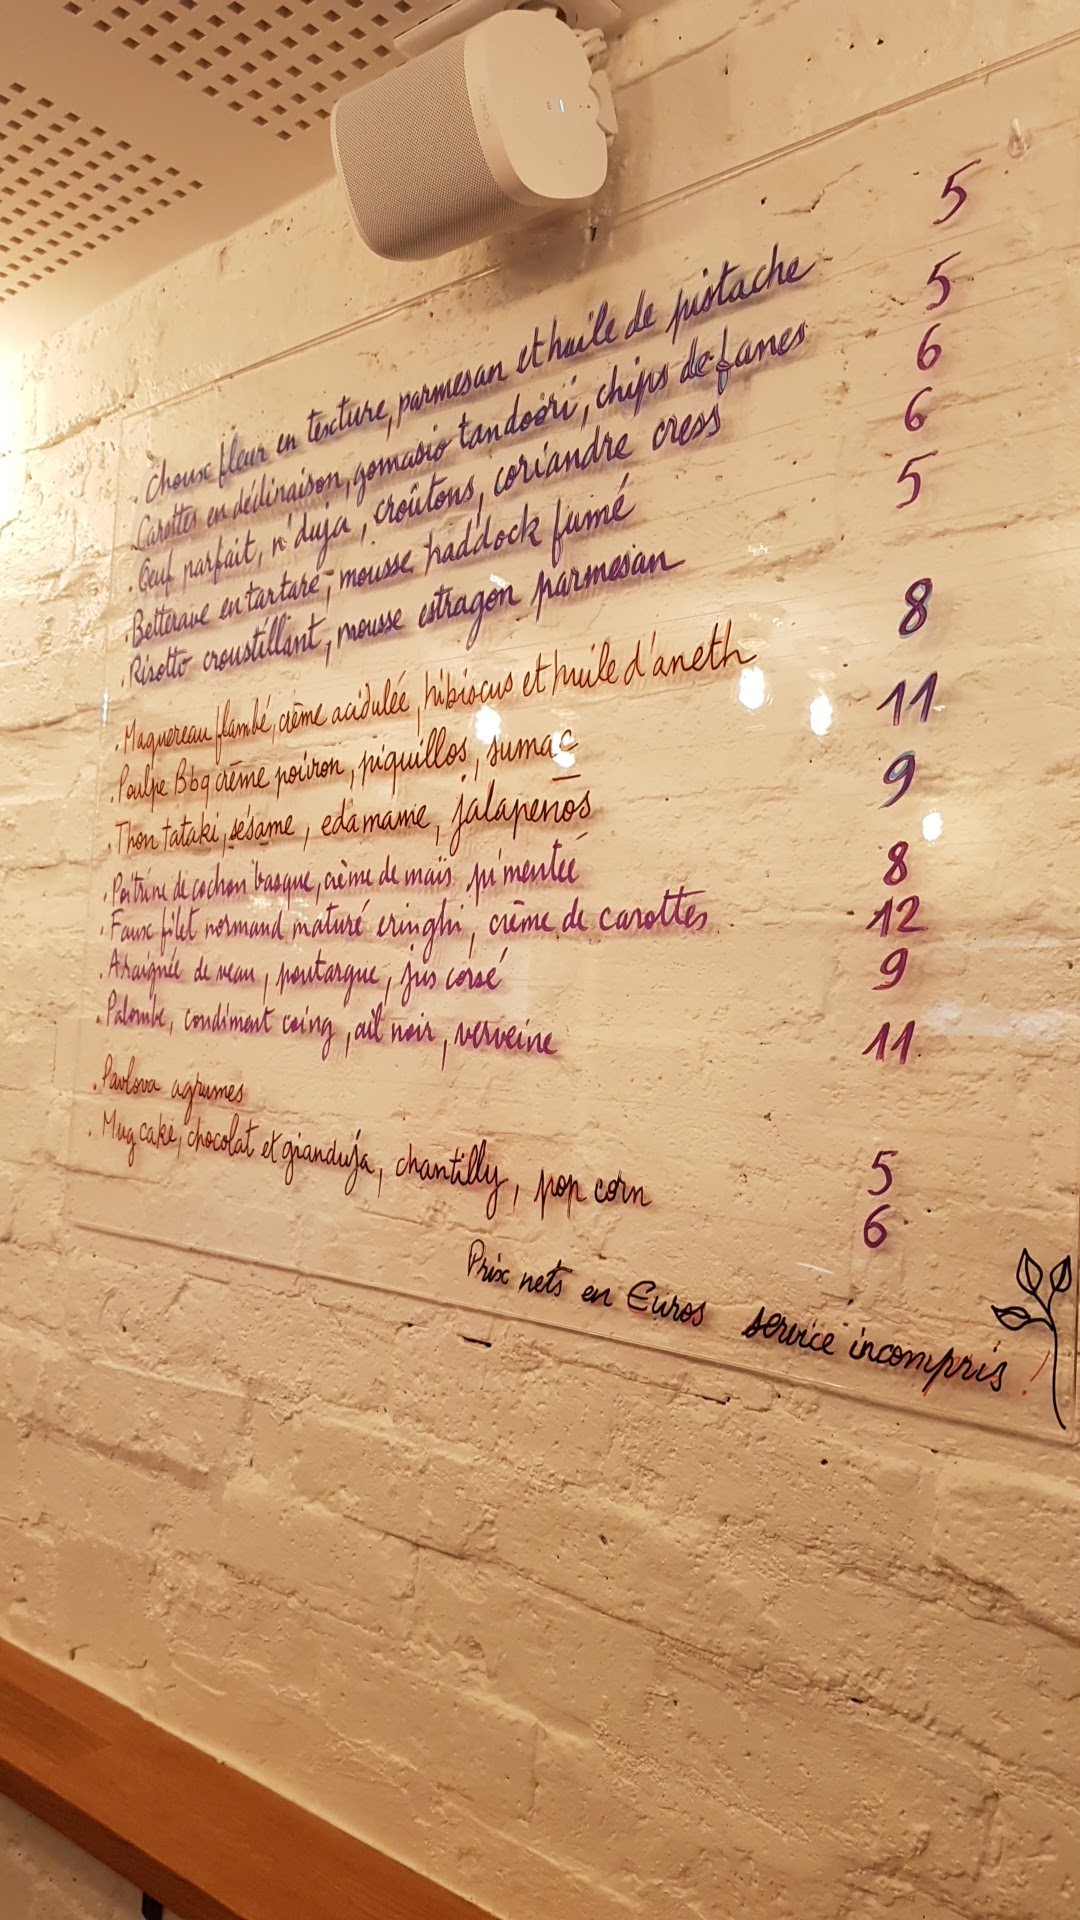 SONOS
. Choux fleur en texture, parmesan et huile de pistache 5
. Carottes en déclinaison, gomasio tandoori, chips de fanes 5
. Oeuf parfait, n'duja, croûtons, coriandre cress 6
. Betterave en tartare, mousse haddock fumé 6
. Risotto croustillant, mousse estragon parmesan 5
. Maquereau flambé, crème acidulée, hibiscus et huile d'aneth 8
. Poulpe Bbq crème poivron, piquillos, sumac 11
. Thon tataki, sésame, edamame, jalapenos 9
. Poitrine de cochon basque, crème de maïs pimentée 8
. Faux filet normand maturé eringhi, crème de carottes 12
. Araignée de veau, poutargue, jus corsé 9
. Palombe, condiment coing, ail noir, verveine 11
. Pavlova agrumes 5
. Mug cake, chocolat et gianduja, chantilly, pop corn 6
Prix nets en Euros service incompris !